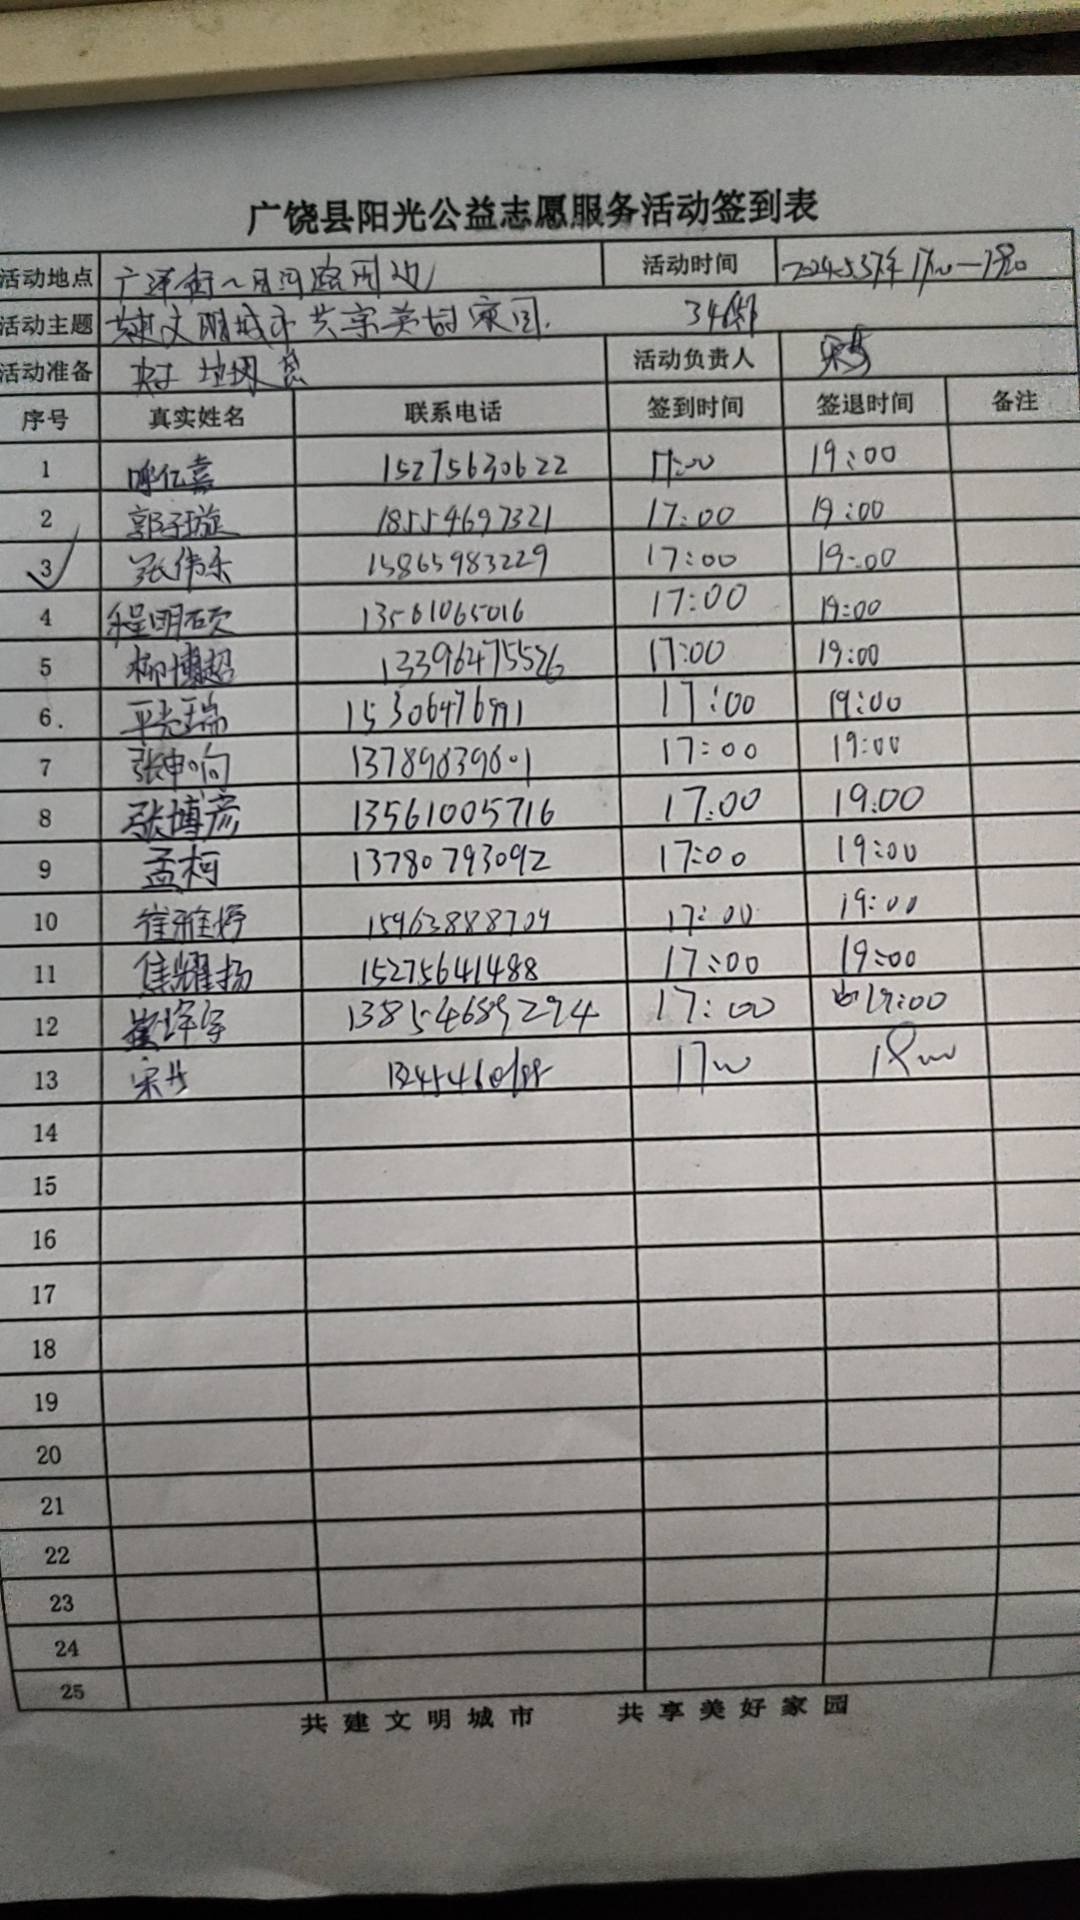 广饶县阳光公益志愿服务活动签到表
活动地点 广 街 月河路周边 活动时间
活动主题 共建文明城市共享美好家园.
活动准备 夹子 垃圾袋 活动负责人
序号 真实姓名 联系电话 签到时间 签退时间 备注
1 呼亿嘉 15275630622 17:00 19:00
2 郭子璇 18554697321 17:00 19:00
3 张伟乐 15865983229 17:00 19:00
4 程明硕 13561065016 17:00 19:00
5 柳博超 13396475526 17:00 19:00
6. 平志瑞 15306476991 17:00 19:00
7 张申响 13789839601 17:00 19:00
8 张博彦 13561005716 17:00 19:00
9 孟柯 13780793092 17:00 19:00
10 崔雅婷 15963888709 17:00 19:00
11 隹耀扬 15275641488 17:00 19:00
12 17:00 19:00
13 宋
14
15
16
17
18
19
20
21
22
23
24
25
共建文明城市 共享美好家园